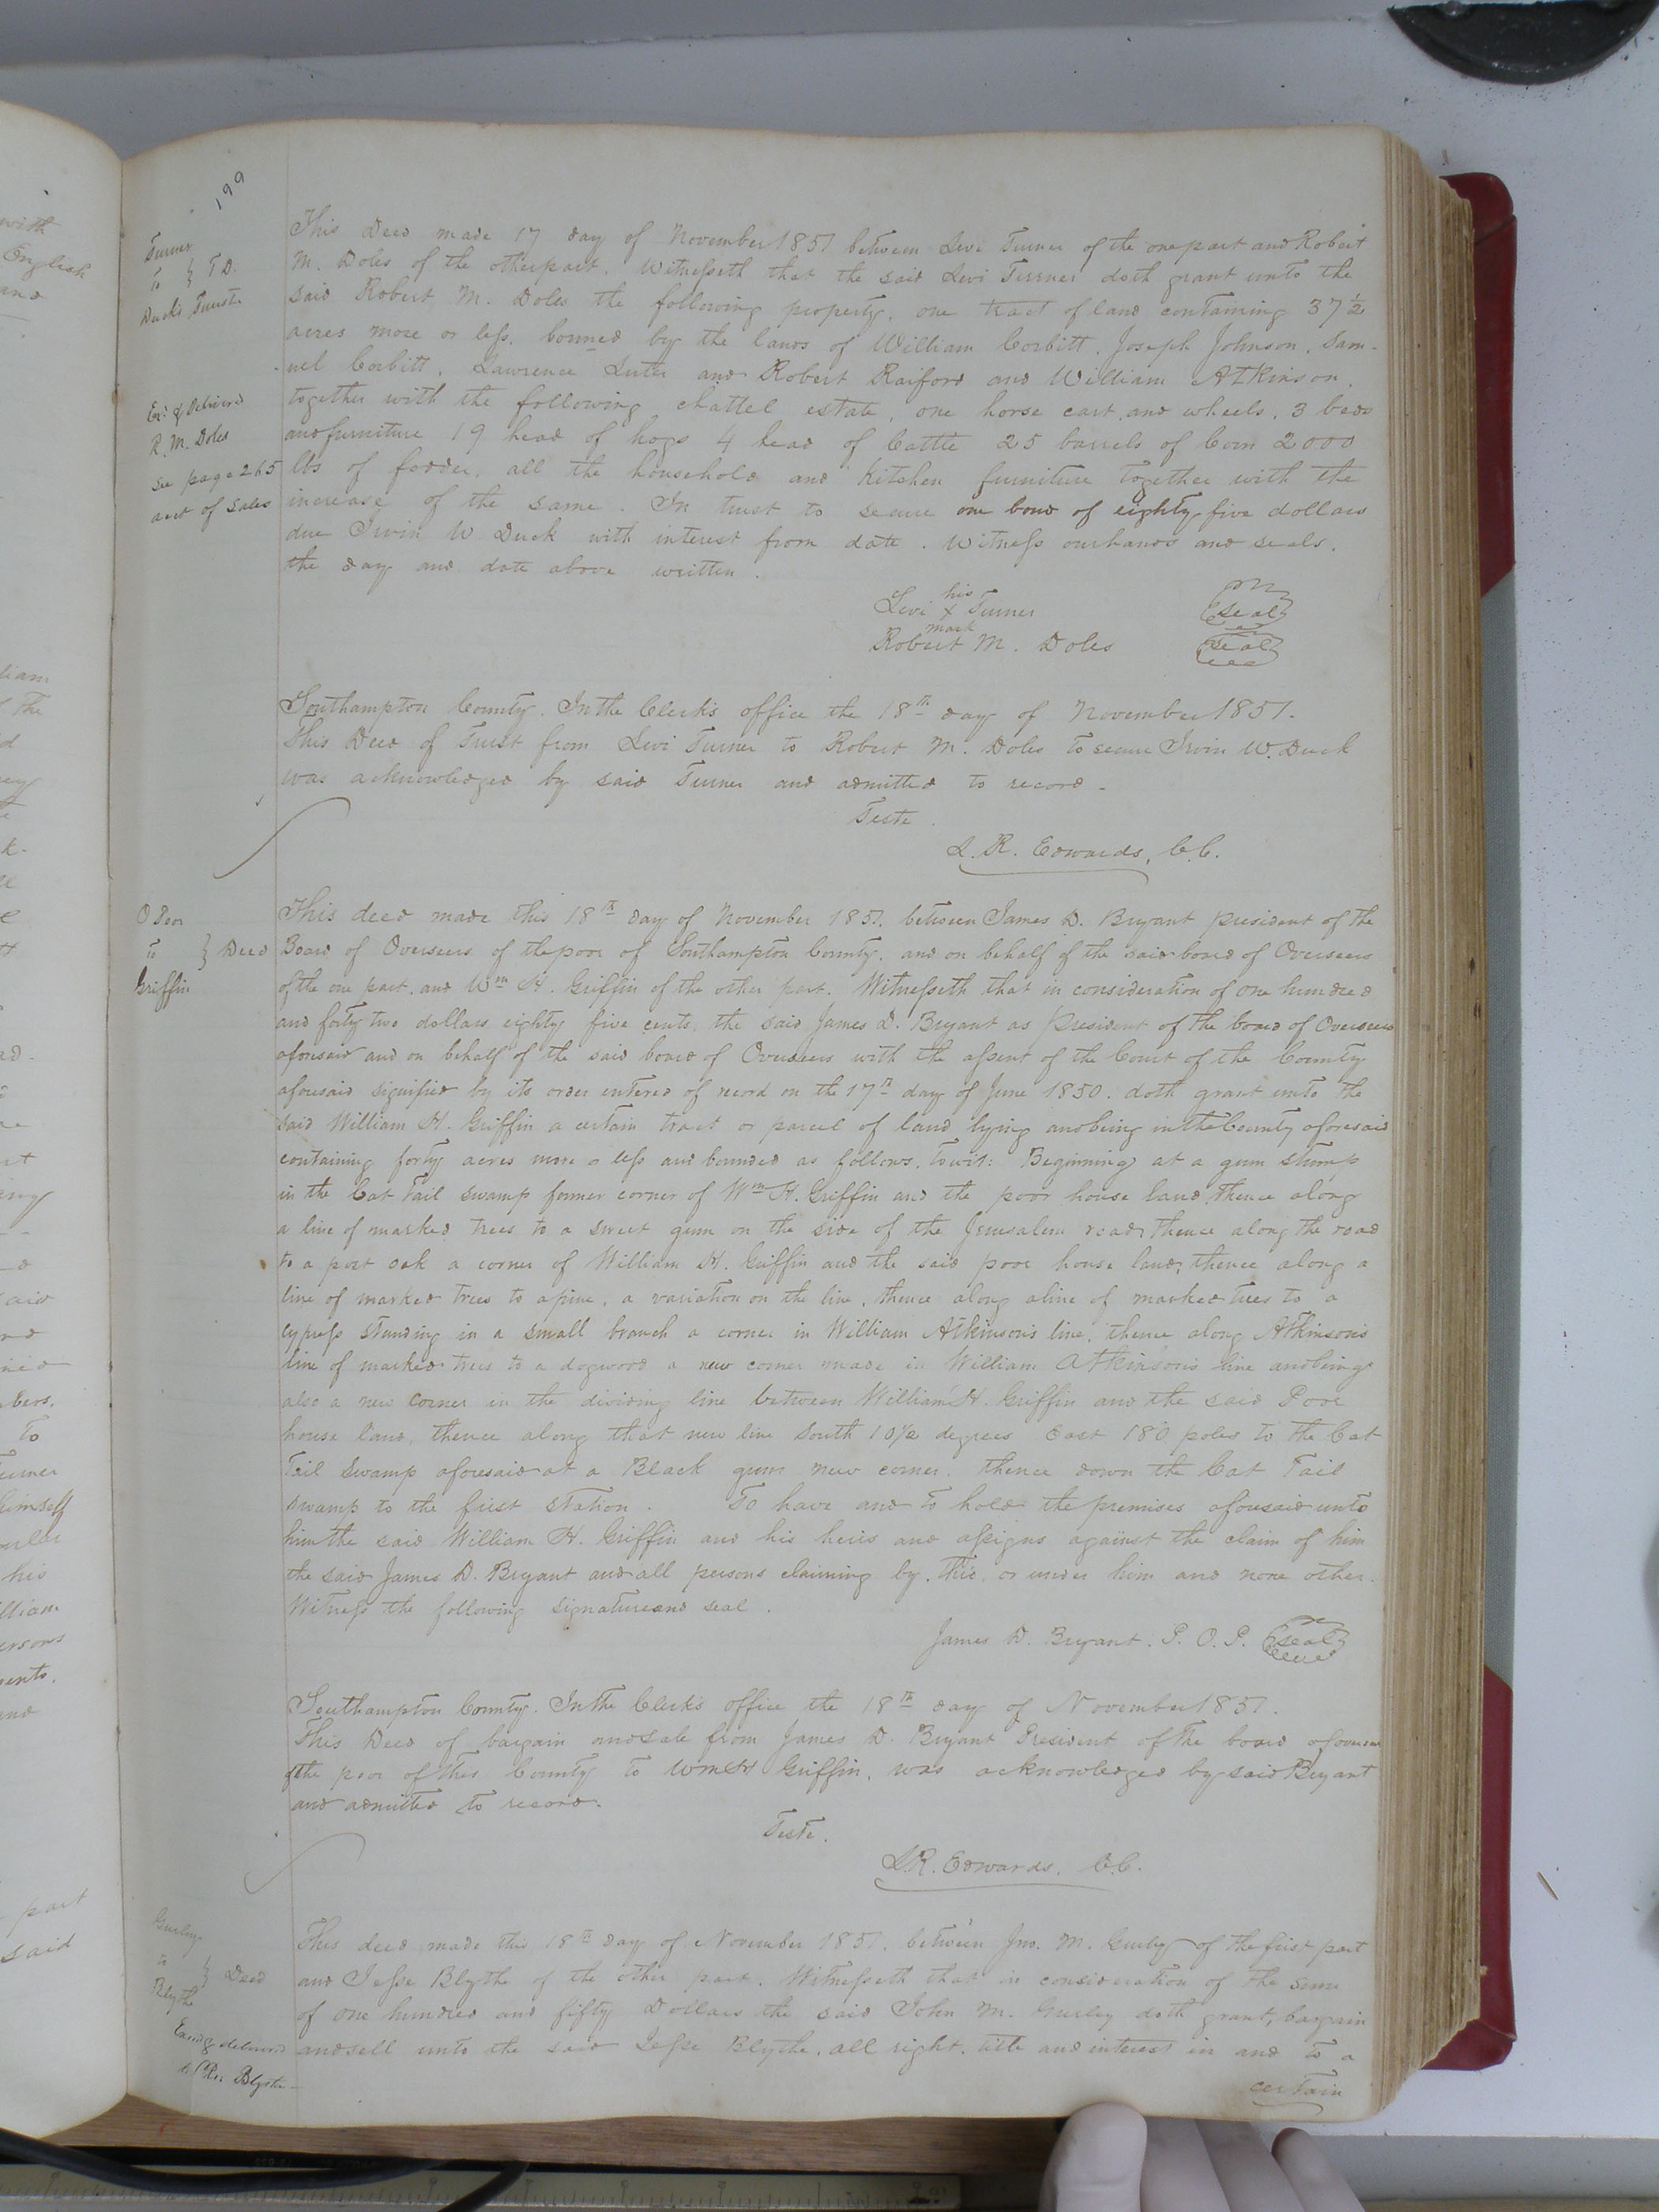 199
Turner
To } T.D.
Duck's Truste
This Deed made 17 day of November 1851 between Levi Turner of the one part and Robert
M. Doles of the other part. Witnesseth that the said Levi Turner doth grant unto the
said Robert M. Doles the following property, one tract of land containing 37 1/2
acres more or less, bouned by the lands of William Corbitt, Joseph Johnson, Sam-
uel Corbitt, Lawrence Luter and Robert Raiford and William Atkinson,
together with the following chattel estate, one horse cart and wheels, 3 beds
and furniture 19 head of hogs 4 head of Cattle 25 barrels of Corn 2000
lbs of fodder, all the household and kitchen furniture together with the
increase of the same. In trust to secure one bond of eighty five dollars
due Irvin W Duck with interest from date. Witness our hands and seals,
the day and date above written.
Exd & Delivered
R. M. Doles
see page 265
acct of sales
his
Levi X Turner seal
mark
Robert M. Doles seal
Southampton County. In the Clerk's office the 18th day of November 1851.
This Deed of Trust from Levi Turner to Robert M. Doles to secure Irvin W. Duck
was acknowledged by said Turner and admitted to record.
Teste
L. R. Edwards, C.C.
O Poor
To } Deed
Griffin
This deed made this 18th day of November 1851. between James D. Bryant president of the
Board of Overseers of the poor of Southampton County, and on behalf of the said board of Overseers
of the one part, and Wm H. Griffin of the other part. Witnesseth that in consideration of one hundred
and forty two dollars eighty five cents, the said James D. Bryant as President of the board of Overseers
aforesaid and on behalf of the said board of Overseers with the assent of the Court of the County
aforesaid signified by its order entered of record on the 17th day of June 1850. doth grant unto the
said William H. Griffin a certain tract or parcel of land lying and being in the County aforesaid
containing forty acres more o less and bounded as follows, towit: Beginning at a gum stump
in the Cat Tail swamp former corner of Wm H. Griffin and the poor house land, thence along
a line of marked trees to a sweet gum on the side of the Jerusalem road, thence along the road
to a post oak a corner of William H. Griffin and the said poor house land, thence along a
line of marked trees to a pine, a variation on the line, thence along a line of marked trees to a
cypress standing in a small branch a corner in William Atkinson's line, thence along Atkinson's
line of marked trees to a dogwood a new corner made in William Atkinson's line and being
also a new corner in the dividing line between William H. Griffin and the said Poor
house land, thence along that new line South 10 1/2 degrees East 180 poles to the Cat
Tail Swamp aforesaid at a Black gum new corner, thence down the Cat Tail
swamp to the first station. To have and to hold the premises aforesaid unto
him the said William H. Griffin and his heirs and assigns against the claim of him
the said James D. Bryant and all persons claiming by, thro, or under him and none other.
Witness the following signature and seal.
James D. Bryant, P. O. P. seal
Southampton County. In the Clerk's office the 18th day of November 1851.
This Deed of bargain and sale from James D. Bryant President of the board of overseers
of the poor of this County to Wm H Griffin, was acknowledged by said Bryant
and admitted to record.
Teste.
L. R. Edwards, C.C.
Gurley
to } Deed
Blythe
Examd & delivered
Blythe
This deed made this 18th day of November 1851. between Jno. M. Gurley of the first part
and Jesse Blythe of the other part. Witnesseth that in consideration of the sum
of one hundred and fifty Dollars the said John M. Gurley doth grant, bargain
and sell unto the said Jesse Blythe, all right, title and interest in and to a
certain